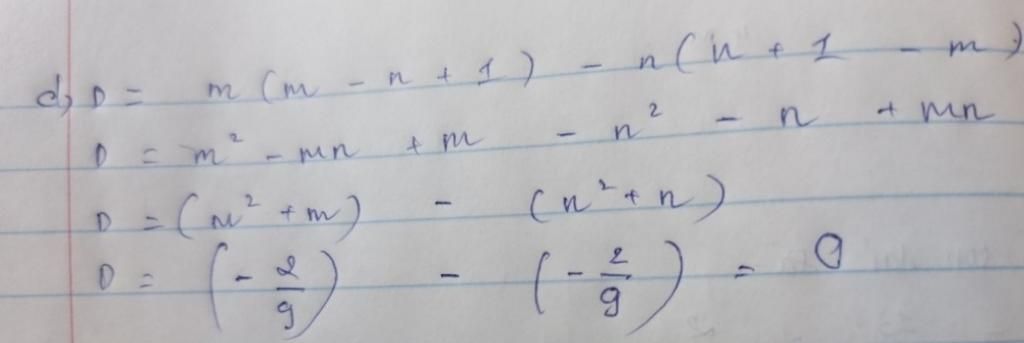 d, D = m (m - n + 1) - n (n + 1 - m)
D = m² - mn + m - n² - n + mn
D = (m² + m) - (n² + n)
D = (- 2/9) - (- 2/9) = 0